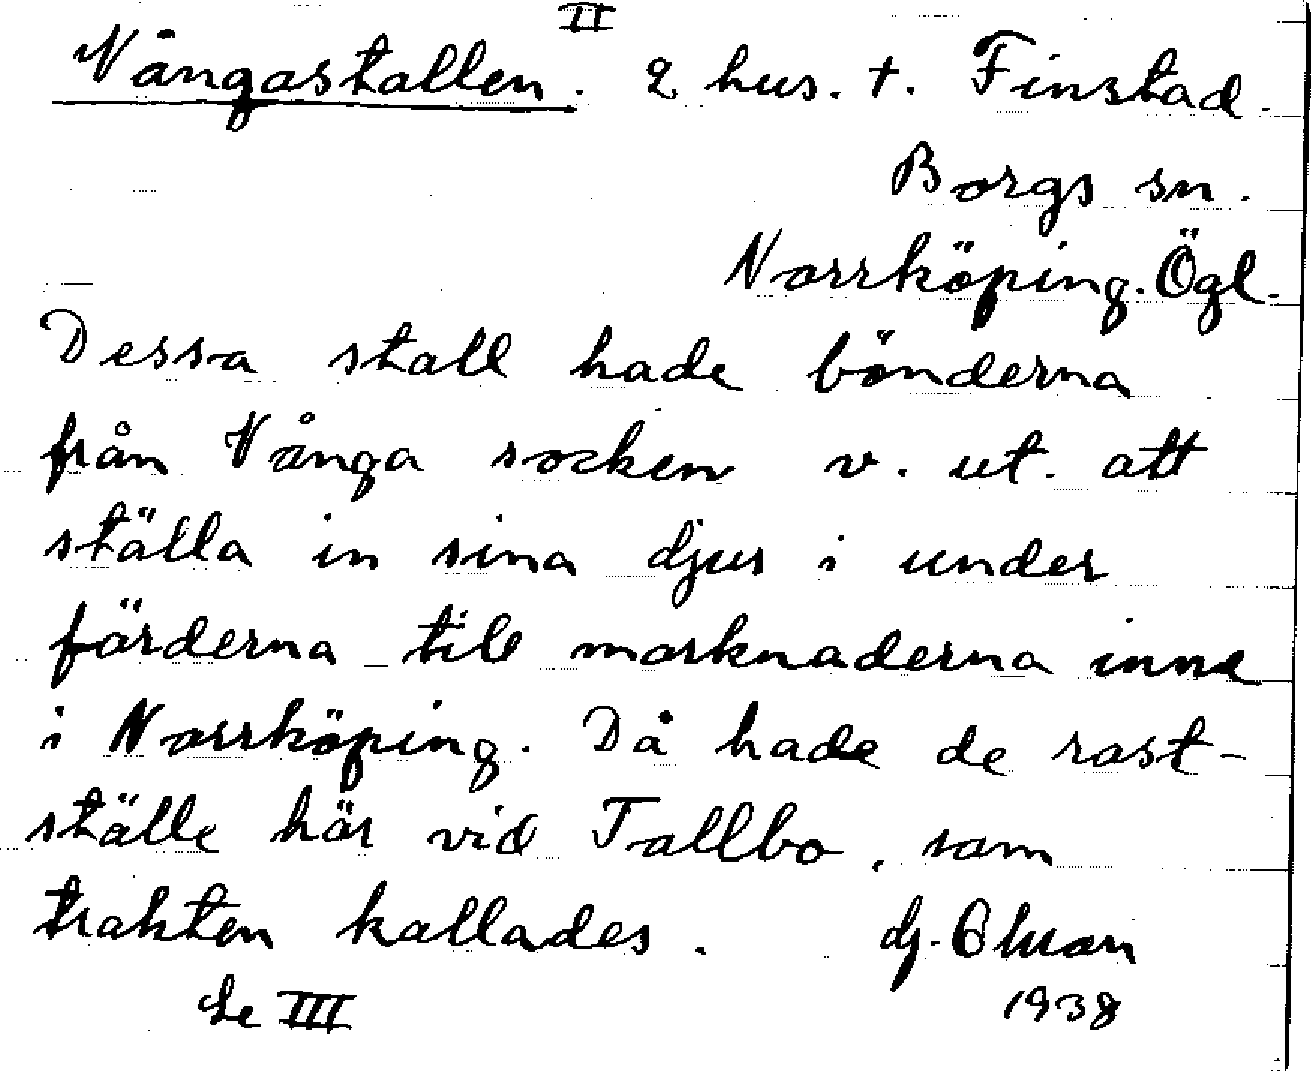 II
Vångastallen. 2 hus. t. Finstad.
Borgs sn.
Norrköping. Ögl.
Dessa stall hade bönderna
från Vånga socken v. ut. att
ställa in sina djur i under
färderna till marknaderna inne
i Norrköping. Då hade de rast-
ställe här vid Tallbo, som
trakten kallades.
Se III
1938